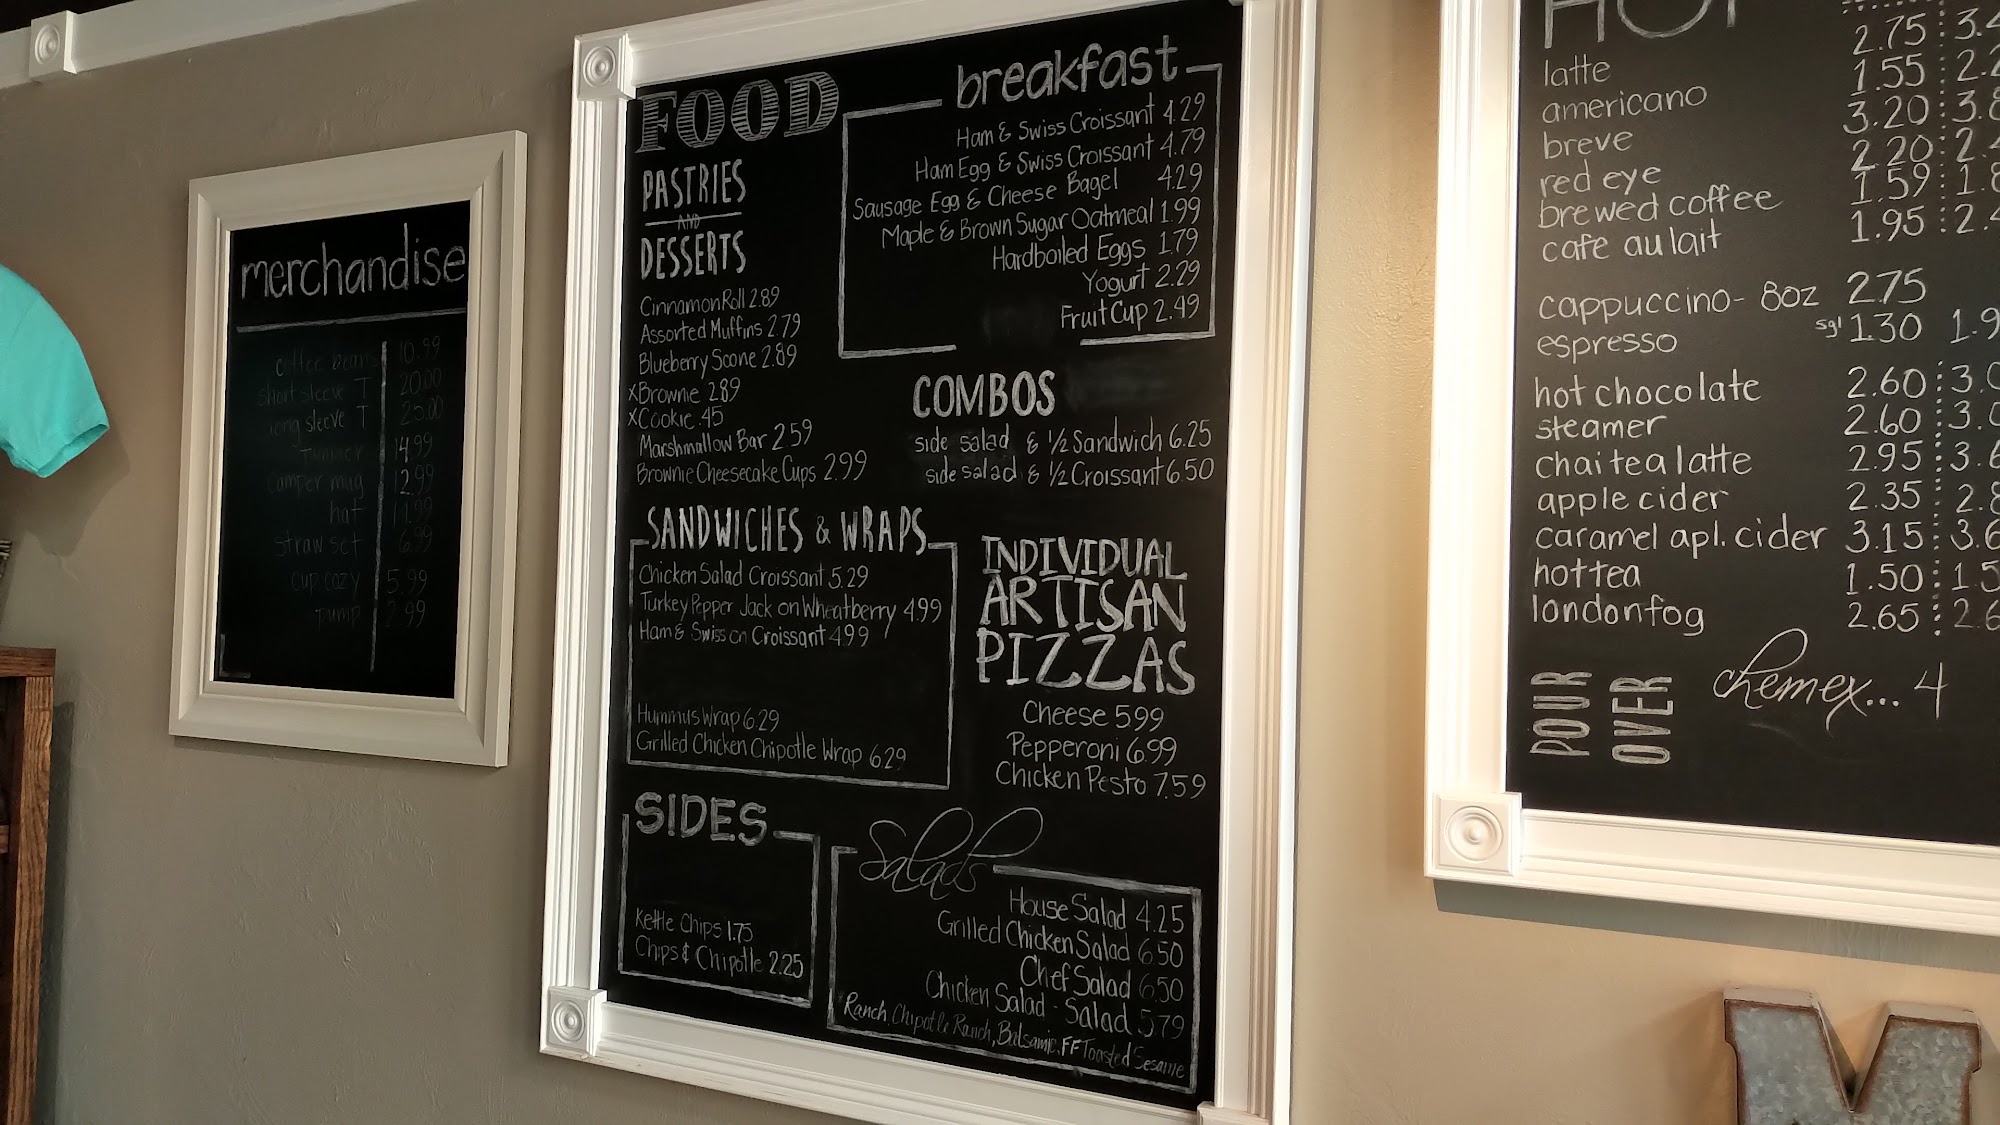 merchandise
coffee beans 10.99
short sleeve T 20.00
long sleeve T 25.00
14.99
camper mug 12.99
hat
straw set 6.99
cup cozy 5.99
pump 2.99
FOOD
PASTRIES
AND
DESSERTS
Cinnamon Roll 2.89
Assorted Muffins 2.79
Blueberry Scone 2.89
xBrownie 2.89
xCookie .45
Marshmallow Bar 2.59
Brownie Cheesecake Cups 2.99
breakfast
Ham & Swiss Croissant 4.29
Ham Egg & Swiss Croissant 4.79
Sausage Egg & Cheese Bagel 4.29
Maple & Brown Sugar Oatmeal 1.99
Hardboiled Eggs 1.79
Yogurt 2.29
Fruit Cup 2.49
COMBOS
side salad & 1/2 Sandwich 6.25
side salad & 1/2 Croissant 6.50
SANDWICHES & WRAPS
Chicken Salad Croissant 5.29
Turkey Pepper Jack on Wheatberry 4.99
Ham & Swiss on Croissant 4.99
Hummus Wrap 6.29
Grilled Chicken Chipotle Wrap 6.29
INDIVIDUAL
ARTISAN
PIZZAS
Cheese 5.99
Pepperoni 6.99
Chicken Pesto 7.59
SIDES
Kettle Chips 1.75
Chips & Chipotle 2.25
Salads
House Salad 4.25
Grilled Chicken Salad 6.50
Chef Salad 6.50
Chicken Salad - Salad 5.79
Ranch, Chipotle Ranch, Balsamic, FF Toasted Sesame
HOT
latte 2.75
americano 1.55
breve 3.20
red eye 2.20
brewed coffee 1.59
cafe au lait 1.95
cappuccino- 8oz 2.75
espresso sgl 1.30 1.9
hot chocolate 2.60
steamer 2.60
chai tea latte 2.95
apple cider 2.35
caramel apl. cider 3.15
hot tea 1.50
london fog 2.65
POUR
OVER
chemex... 4
M